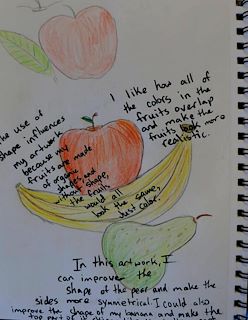 I like how all of
the colors in the
fruits overlap
and make the
fruits look more
realistic.
the use of
shape influences
my artwork
because my
fruits are made
of organic
shapes and
without shape,
the fruits
would all
look the same,
just color.
In this artwork, I
can improve the
shape of the pear and make the
sides more symmetrical. I could also
improve the shape of my banana and make the
top part of